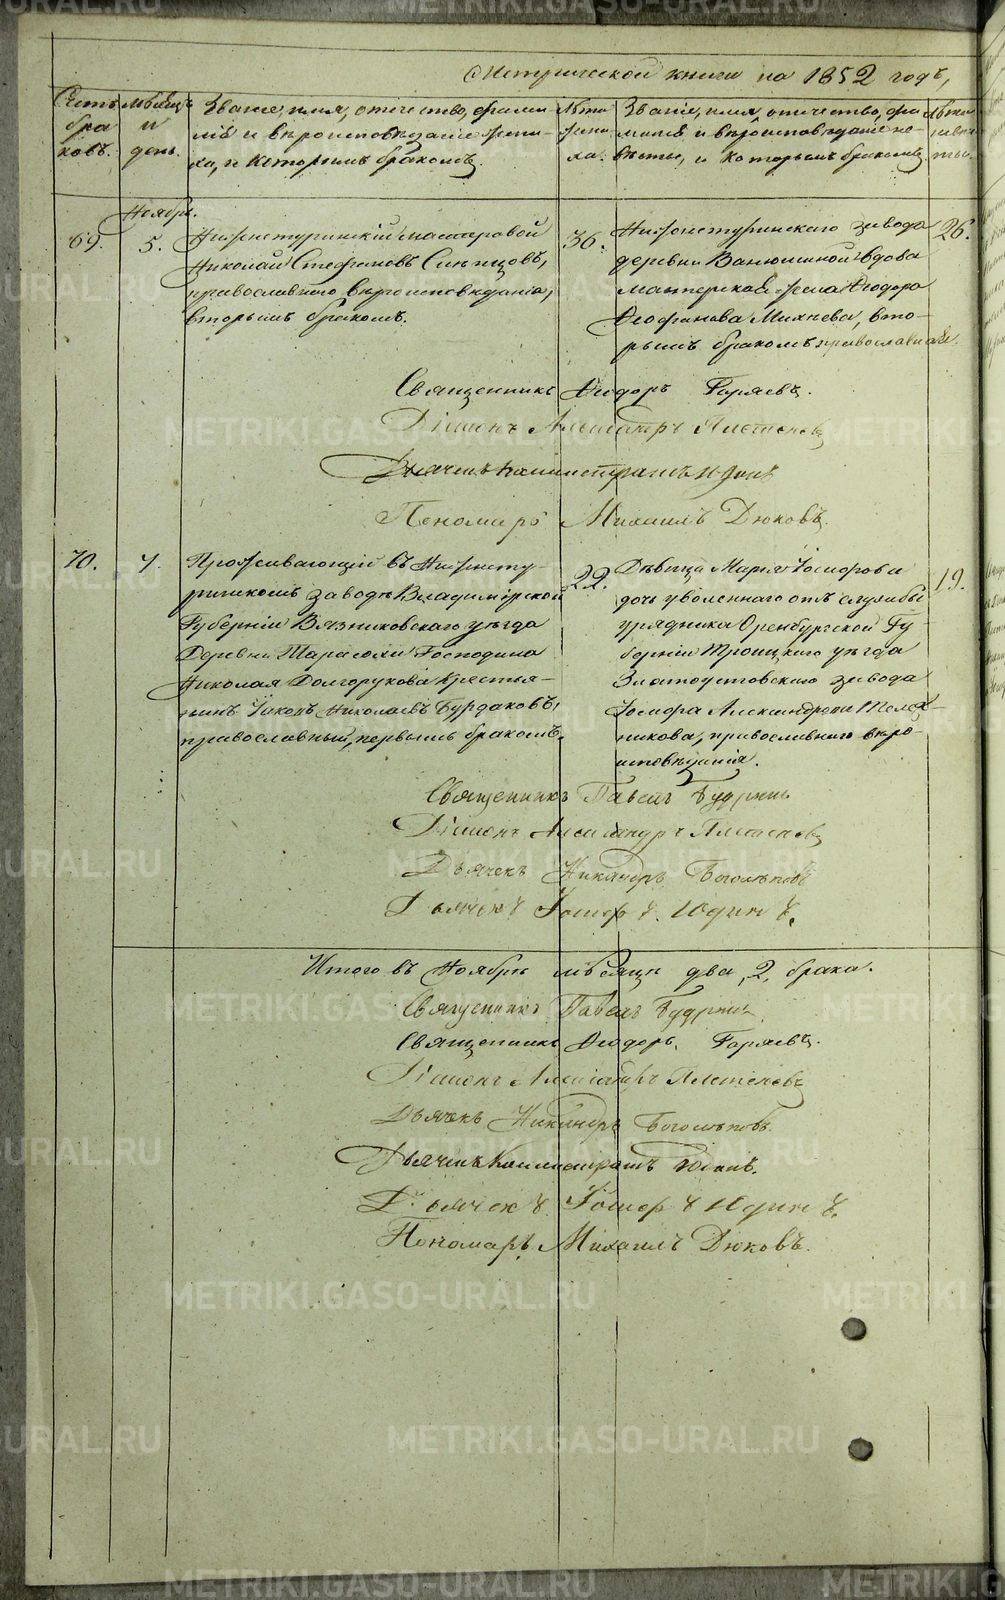 Метрической книги на 1852 годъ,
Счетъ браковъ.
Мѣсяцъ и день.
Званіе, имя, отечество, фами-
лія и вѣроисповѣданіе жени-
ха, и которымъ бракомъ.
Лѣта жени-
ха.
Званіе, имя, отечество, фа-
милія и вѣроисповѣданіе не-
вѣсты, и которымъ бракомъ
Лѣта невѣс-
ты.
Ноябрь.
69.
5.
Нижнетуринскій мастеровой
Николай Стефановъ Синицовъ,
православнаго вѣроисповѣданія,
вторымъ бракомъ.
36.
Нижнетуринскаго завода
деревни Ванюшиной вдова
мастерская жена Ѳеодора
Ѳеофанова Михнева, вто-
рымъ бракомъ православная.
26.
Священникъ Ѳеодоръ Горяевъ.
Діаконъ Александръ Плотниковъ
Дьячекъ Калистратъ Юдинъ
Пономарь Михаилъ Дюковъ.
70.
7.
Проживающій въ Нижнету-
ринскомъ заводѣ Владимірской
Губерніи Вязниковскаго уѣзда
Деревни Тарасихи Господина
Николая Долгорукова крестья-
нинъ Іаковъ Николаевъ Бурдаковъ,
православный, первымъ бракомъ.
22.
Дѣвица Марія Іосифова
дочь уволеннаго отъ службы
урядника Оренбургской Гу-
берніи Троицкаго уѣзда
Златоустовскаго завода
Іосифа Александрова
никова, православнаго вѣро-
исповѣданія.
19.
Священникъ Павелъ Будринъ
Діаконъ Александръ Плотниковъ
Дьячекъ Никандръ Боголѣповъ
Дьячекъ Іосифъ Юдинъ.
Итого въ Ноябрѣ мѣсяцѣ два, 2, брака.
Священникъ Павелъ Будринъ
Священникъ Ѳеодоръ Горяевъ.
Діаконъ Александръ Плотниковъ
Дьячекъ Никандръ Боголѣповъ.
Дьячекъ Калистратъ Юдинъ.
Дьячекъ Іосифъ Юдинъ.
Пономарь Михаилъ Дюковъ.
METRIKI.GASO-URAL.RU